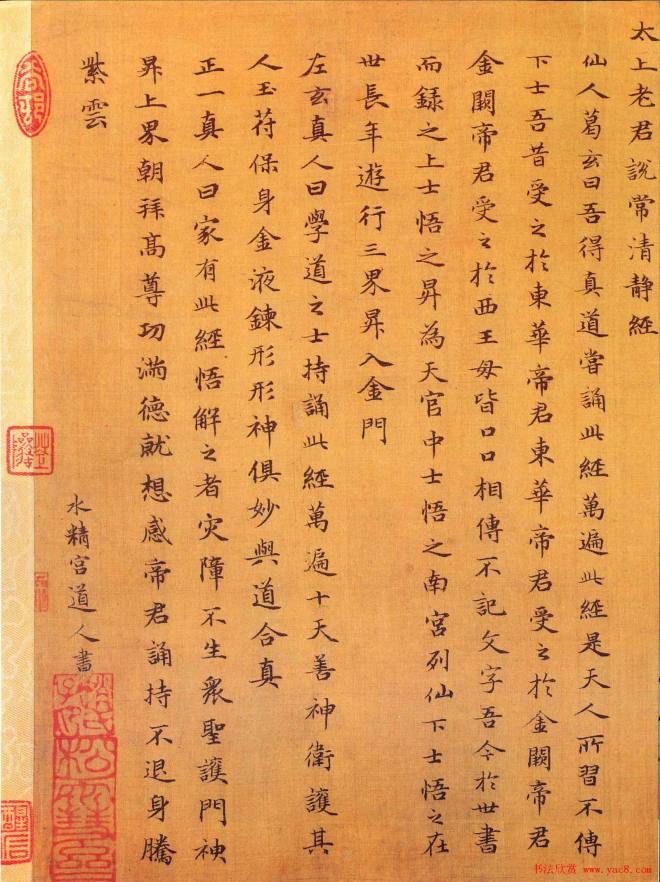 太上老君說常清静經
仙人葛玄曰吾得真道嘗誦此經萬遍此經是天人所習不傳
下士吾昔受之於東華帝君東華帝君受之於金闕帝君
金闕帝君受之於西王母皆口口相傳不記文字吾今於世書
而録之上士悟之昇為天官中士悟之南宮列仙下士悟之在
世長年遊行三界昇入金門
左玄真人曰學道之士持誦此經萬遍十天善神衛護其
人玉苻保身金液鍊形形神俱妙與道合真
正一真人曰家有此經悟解之者灾障不生衆聖護門神
昇上界朝拜髙尊功滿德就想感帝君誦持不退身騰
紫雲
水精宫道人書
书法欣赏 www.yac8.com